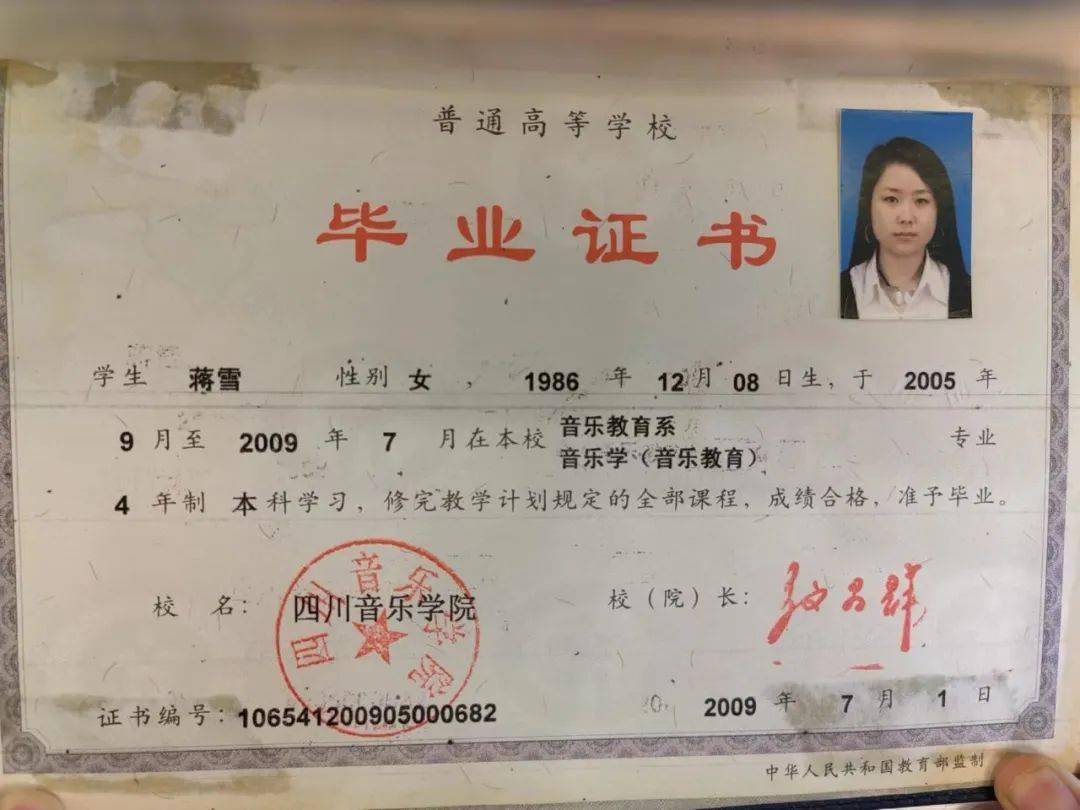 普通高等学校
毕业证书
学生 蒋雪 性别 女 ， 1986 年 12 月 08 日生，于 2005 年
9 月至 2009 年 7 月在本校 音乐教育系
音乐学（音乐教育） 专业
4 年制 本 科学习，修完教学计划规定的全部课程，成绩合格，准予毕业。
校 名： 四川音乐学院 校（院）长：
四川音乐学院
证书编号：106541200905000682 2009 年 7 月 1 日
中华人民共和国教育部监制